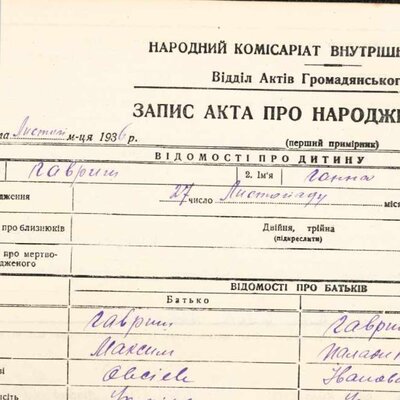 НАРОДНИЙ КОМІСАРІАТ ВНУТРІШ
Відділ Актів Громадянсько
ЗАПИС АКТА ПРО НАРОДЖЕ
м-ця 1936 р.
(перший примірник)
ВІДОМОСТІ ПРО ДИТИНУ
Гавриш 2. Ім'я Ганна
дження 27 число Листопаду міся
про близнюків Двійня, трійня
(підкреслити)
про мертво-
дженого
ВІДОМОСТІ ПРО БАТЬКІВ
Батько
Гавриш Гавриш
Максим
Овсіев Іванов